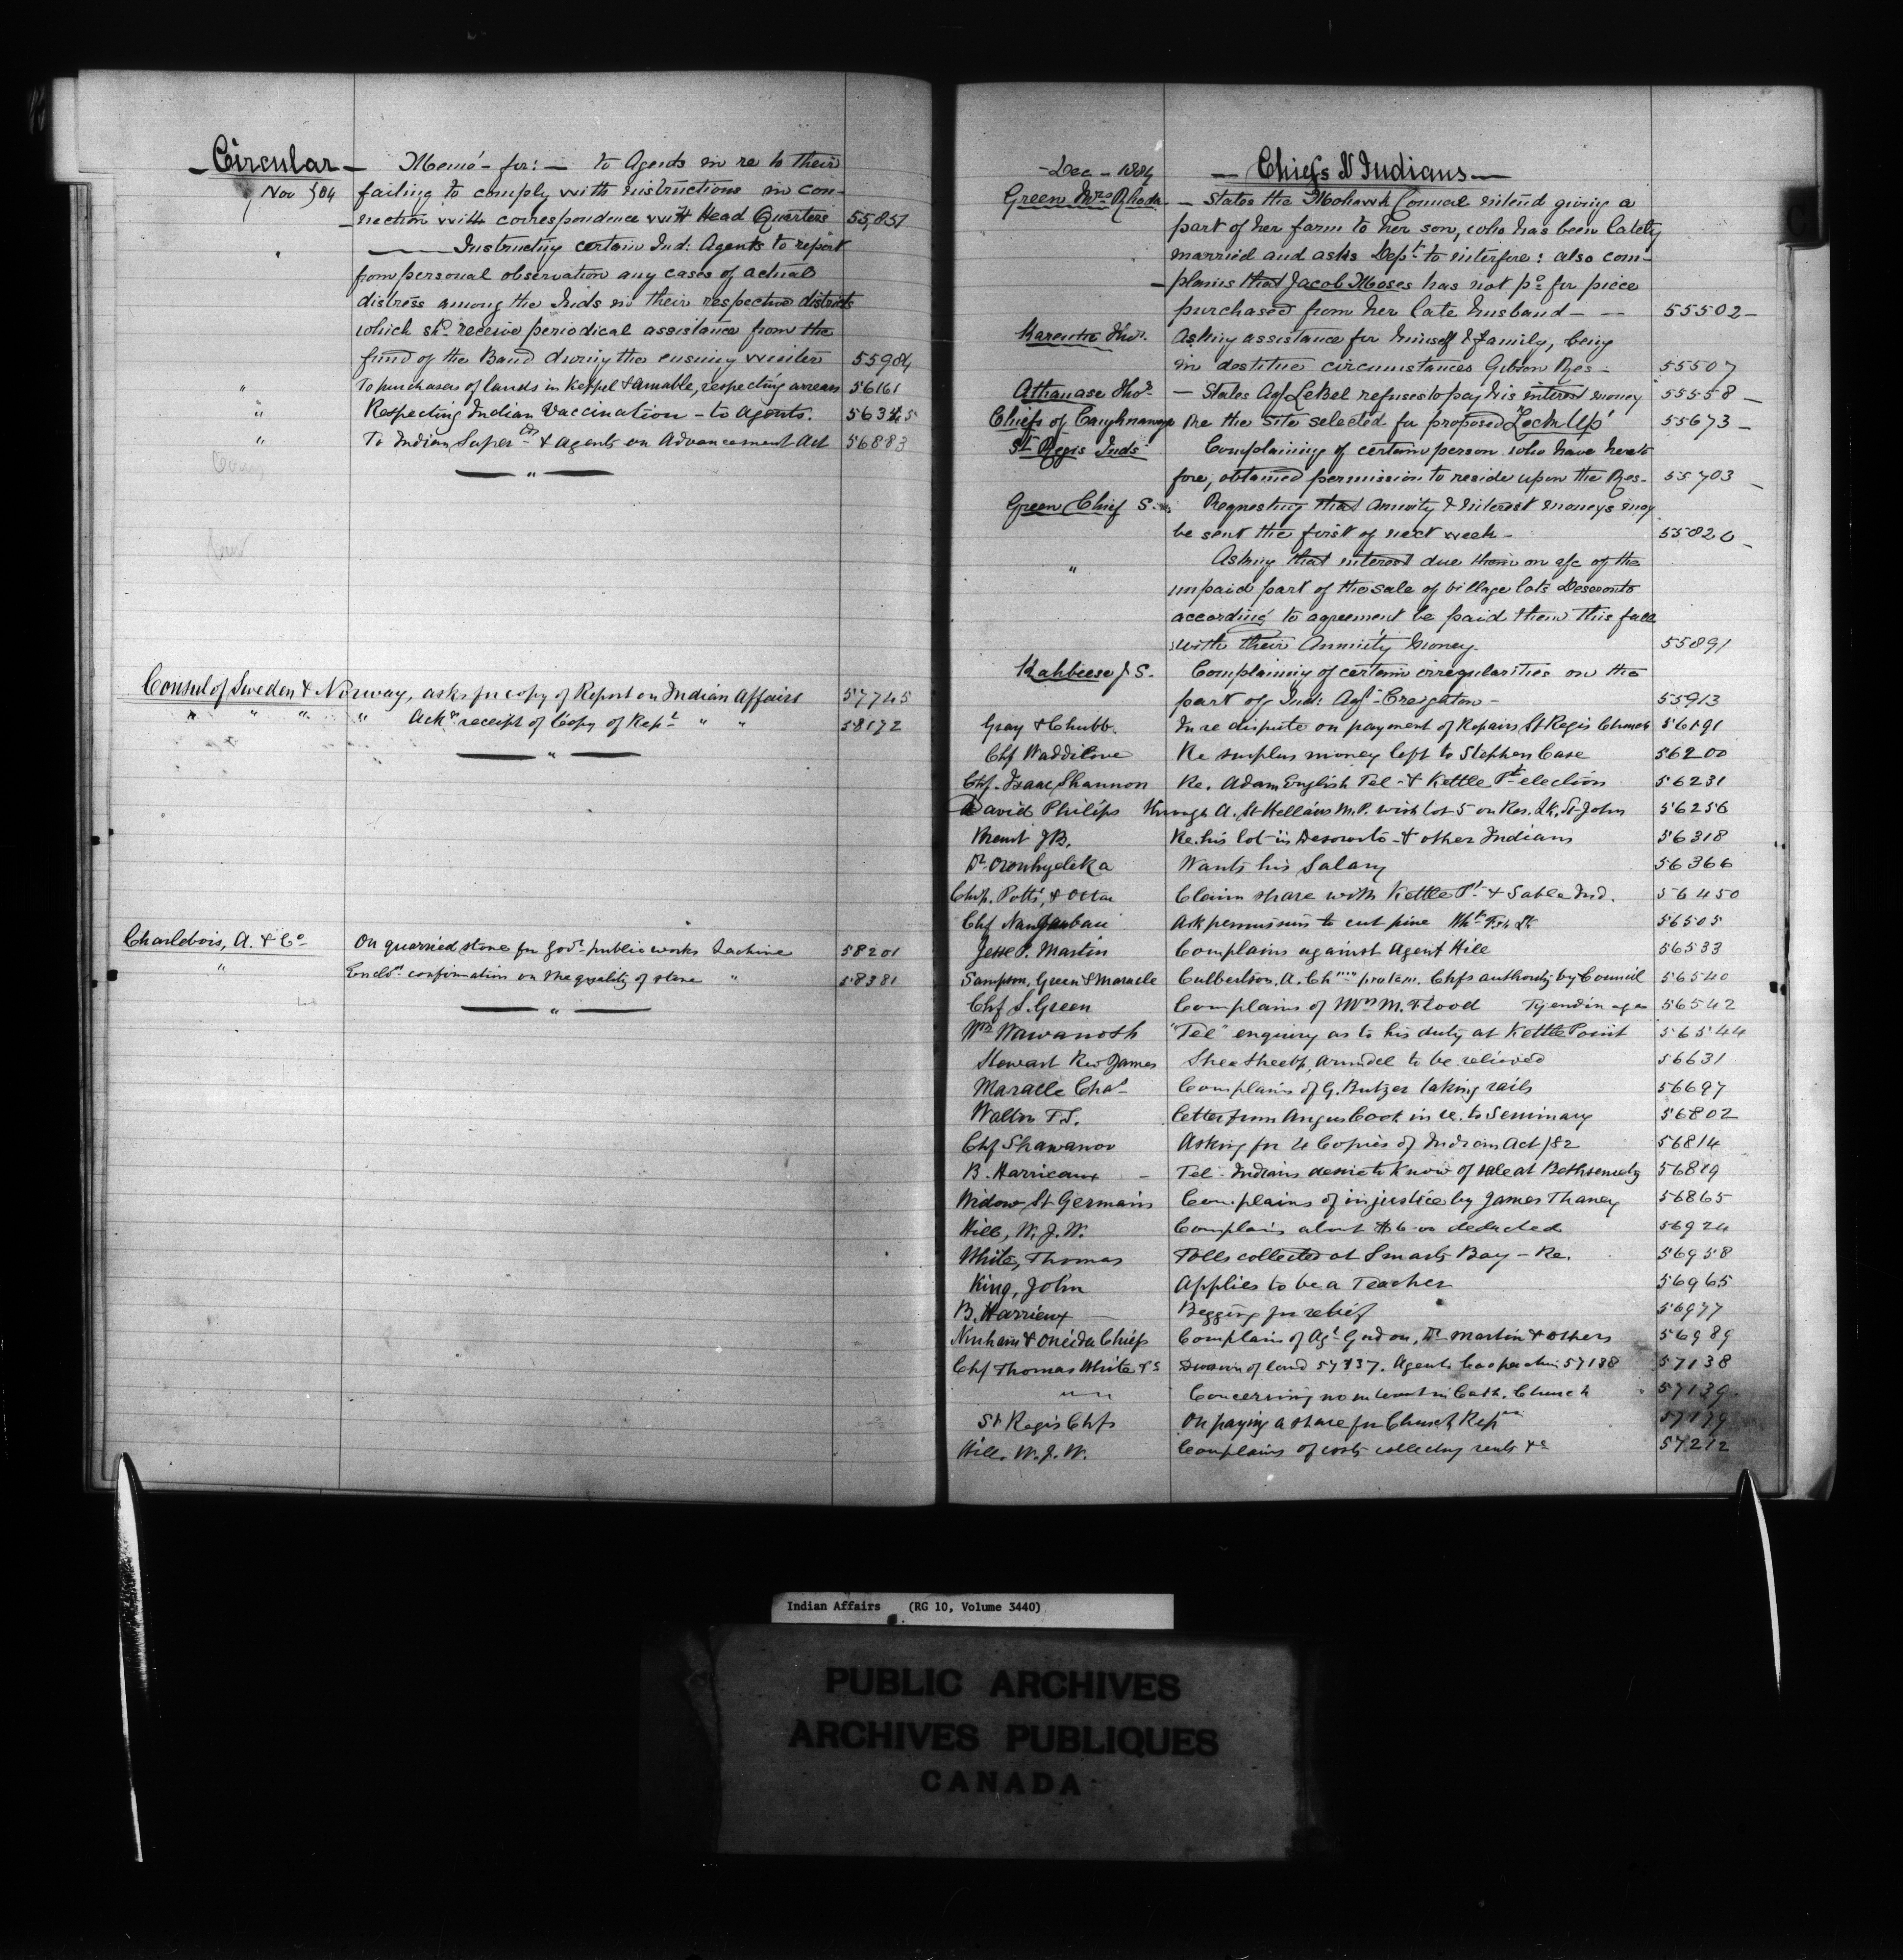 - Circular - Memo - for: - to Agents in re to their
Nov } 84 failing to comply with instructions in con-
-nection with correspondence with Head Quarters 55,851
" Instructing certain Ind: Agents to report
from personal observation any cases of actual
distress among the Inds in their respective districts
which shd receive periodical assistance from the
fund of the Band during the ensuing winter 55984
" To purchasers of lands in Keppel & Amable, respecting arrears 56161
" Respecting Indian Vaccination - to Agents.
" To Indian Superts & Agents on Advancement Act 56883
"
Consul of Sweden & Norway, asks for copy of Report on Indian Affairs 57745
" " " " Ackn receipt of Copy of Rept " " 58172
"
Charlebois, A. & Co On quarried stone for Govt public works Lachine 58201
" Encls confirmation on the quality of stone " 58381
"
- Dec - 1884 - Chiefs & Indians -
Green Mrs - States the Mohawk Council intend giving a
part of her farm to her son, who has been lately
married and asks Dept to interfere: also com-
-plains that Jacob Moses has not pd for piece
purchased from her late husband - - 55502 -
Asking assistance for himself & family, being
in destitue circumstances Gibson Res - 55507
Athanase Thos - States Agt LeBel refuses to pay his interest money 55558 -
Chiefs of Caughnawaga Re the site selected for proposed "Lock Up" 55673 -
St Regis Inds Complaining of certain person who have hereto
fore, obtained permission to reside upon the Res- 55703 -
Green Chief S. Requesting that annuity & interest moneys may
be sent the first of next week - 55820 -
" Asking that interest due them on a/c of the
unpaid part of the sale of village lots Deseronto
according to agreement be paid them this fall
with their Annuity Money. 55891
Kahbeese J S. Complaining of certain irregularities on the
part of Ind: Agt Creighton - 55913
Gray & Chubb. In re dispute on payment of Repairs St Regis Church 56191
Chf Waddilove Re surplus money left to Stephen Case 56200
Chf. Isaac Shannon Re. Adam English Tel - & Kettle Pt election 56231
David Philips through A. St Hellais M.P. wish lot 5 on Res. Lk. St John 56256
Brant J B. Re. his lot in Deseronto - & other Indians 56318
Dr Oronhyateka Wants his Salary 56366
Chfs. Potts, & Claim share with Kettle Pt & Sable Ind. 56450
Chf Ask permission to cut pine 56505
Jesse P. Martin Complains against Agent Hill 56533
Sampson, Green & Maracle Culbertson, A. Chmn protem. Chfs authority by Council 56540
Chf S. Green Complains of Wm M. Flood Tyendinaga 56542
Wm Wawanosh "Tel" enquiry as to his duty at Kettle Point 56544
Stewart Rev James Arundel to be relieved 56631
Maracle Chas - Complains of G. Butzer taking rails 56697
Walton T S. Letter from Angus Cook in re. to Seminary 56802
Chf Shawanoo Asking for 4 Copies of Indian Act /82 56814
B. Harrieaux - Tel - Indians desire to know of sale at 56819
Widow St Germain Complains of injustice by James Thaney 56865
Hill, W. J. W. Complain about $6.00 deducted 56924
White, Thomas Tolls collected at Smarts Bay - Re. 56958
King, John Applies to be a Teacher 56965
B. Harrieux Begging for relief 56977
Ninham & Oneida Chiefs Complain of Agt Gordon, Dr Martin & others 56989
Chf Thomas White &c Division of land 57137. Agents 57138 57138
" " Concerning Cath. Church 57139
St Regis Chfs On paying a share for Church Reprs 57179
Hill. W. J. W. Complains of costs collecting rents &c 57212
Indian Affairs (RG 10, Volume 3440)
PUBLIC ARCHIVES
ARCHIVES PUBLIQUES
CANADA